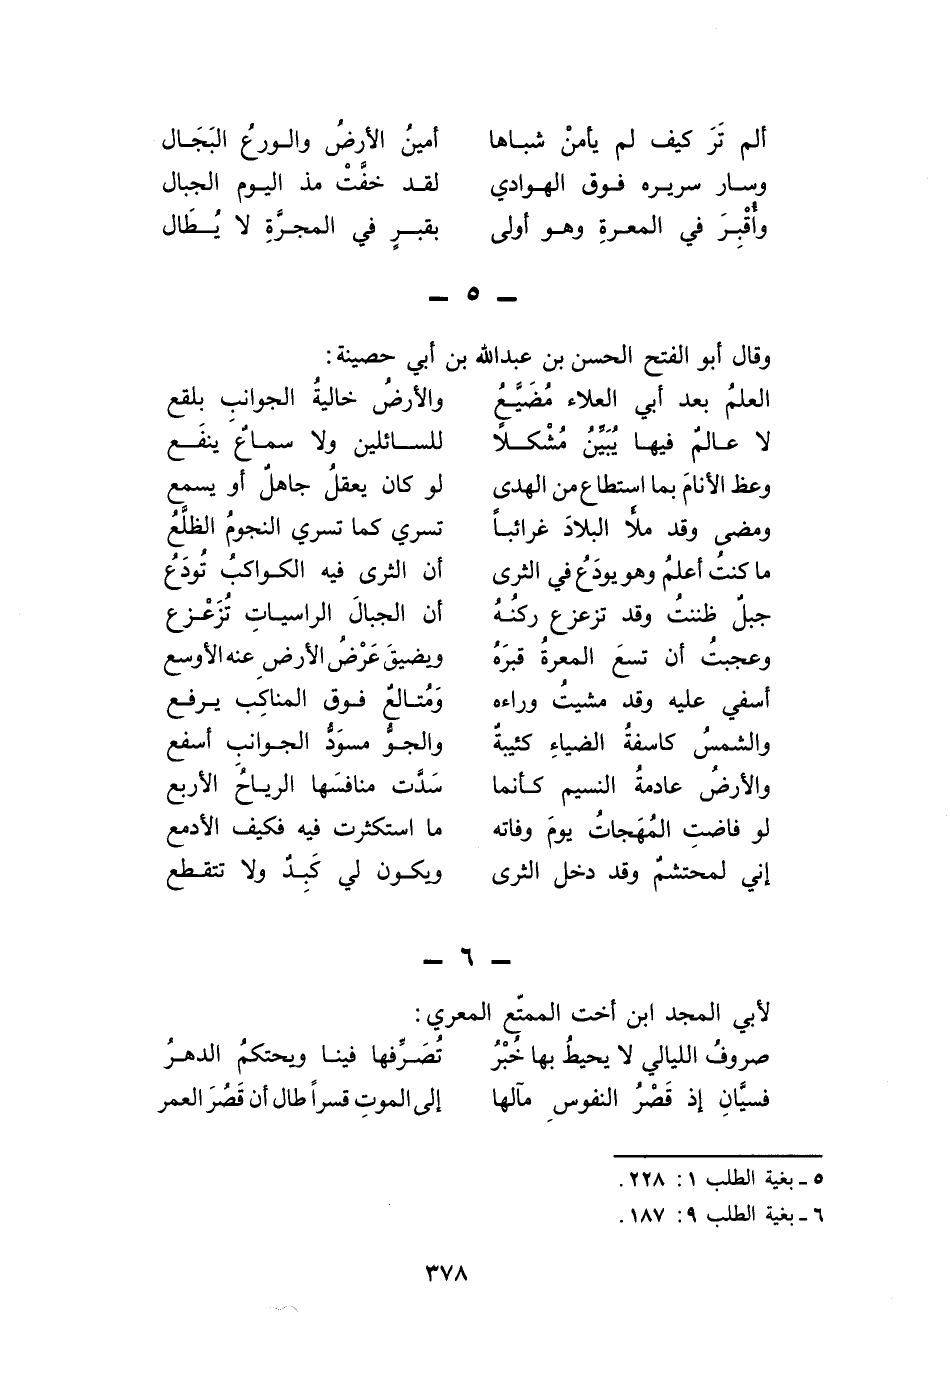 ألم تَرَ كيف لم يأمنْ شباها أمينُ الأرضُ والورعُ البَجَال
وسار سريره فوق الهوادي لقد خفَّتْ مذ اليوم الجبال
وأُقْبِرَ في المعرةِ وهو أولى بقبرٍ في المجرَّةِ لا يُطَال
ـ ٥ ـ
وقال أبو الفتح الحسن بن عبدالله بن أبي حصينة:
العلمُ بعد أبي العلاء مُضَيَّعُ والأرضُ خاليةُ الجوانبِ بلقع
لا عالمٌ فيها يُبَيِّنُ مُشْكلاً للسائلين ولا سماعٌ ينفَع
وعظ الأنامَ بما استطاع من الهدى لو كان يعقلُ جاهلٌ أو يسمع
ومضى وقد ملأَ البلادَ غرائباً تسري كما تسري النجومُ الظلَّعُ
ما كنتُ أعلمُ وهو يودَعُ في الثرى أن الثرى فيه الكواكبُ تُودَعُ
جبلٌ ظننتُ وقد تزعزع ركنُهُ أن الجبالَ الراسياتِ تُزَعْزع
وعجبتُ أن تسعَ المعرةُ قبرَهُ ويضيقَ عَرْضُ الأرضِ عنه الأوسع
أسفي عليه وقد مشيتُ وراءه وَمُتالعٌ فوق المناكِب يرفع
والشمسُ كاسفةُ الضياءِ كئيبةٌ والجوُّ مسوَدُّ الجوانبِ أسفع
والأرضُ عادمةُ النسيم كأنما سَدَّت منافسَها الرياحُ الأربع
لو فاضتِ المُهَجاتُ يومَ وفاته ما استكثرت فيه فكيف الأدمع
إني لمحتشمٌ وقد دخل الثرى ويكون لي كَبِدٌ ولا تتقطع
ـ ٦ ـ
لأبي المجد ابن أخت الممتّع المعري:
صروفُ الليالي لا يحيطُ بها خُبْرُ تُصَرِّفها فينا ويحتكمُ الدهرُ
فسيَّانِ إذ قَصْرُ النفوسِ مآلها إلى الموتِ قسراً طال أن قَصُرَ العمر
٥ ـ بغية الطلب ١: ٢٢٨.
٦ ـ بغية الطلب ٩: ١٨٧.
٣٧٨